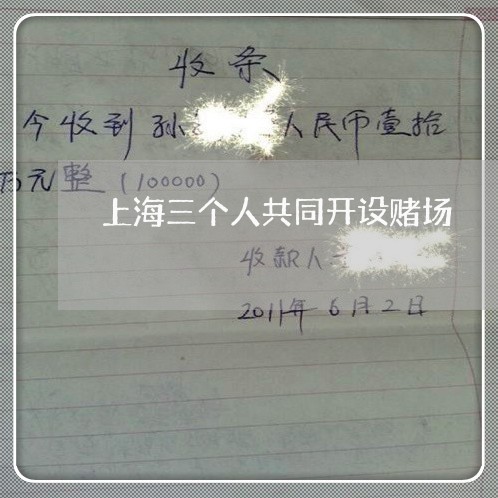 收条
今收到孙 人民币壹拾
万元整（100000）
上海三个人共同开设赌场
收款人
2011年6月2日